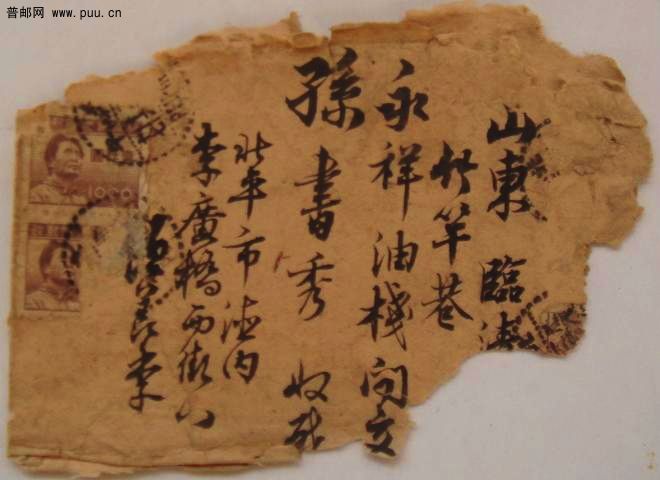 普邮网 www.puu.cn
山東 臨清
竹竿巷
永祥油棧問交
孫書秀 收啟
北平市德内
李廣橋西街八
李
1000